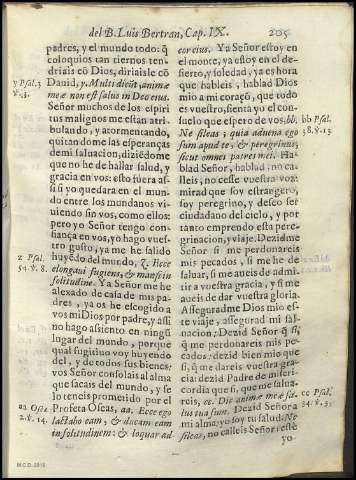 del B. Luis Bertran, Cap. IX.
205
padres, y el mundo todo: q̃
coloquios tan tiernos ten-
driais cõ Dios, diriaisle cõ
y Psal. 3
Dauid, y. Multi dicũt, animæ
v. 3.
meæ non est salus in Deo eius.
Señor muchos de los espiri
tus malignos me estan atri
bulando, y atormentando,
quitan dome las esperanças
de mi saluacion, diziẽdome
que no he de hallar salud, y
gracia en vos: esto fuera as-
si si yo quedara en el mun-
do entre los mundanos vi-
uiendo sin vos, como ellos:
pero yo Señor tengo con-
fiança en vos, yo hago vues-
tro gusto, ya me he salido
z Psal.
huyẽdo del mundo, z. Ecce
54. v. 8.
elongaui fugiens, & mansi in
solitudine. Ya Señor me he
alexado de casa de mis pa-
dres, ya os he escogido a
vos mi Dios por padre, y assi
no hago assiento en ningũ
lugar del mundo, porque
qual fugitiuo voy huyendo
del, y de todos sus bienes:
vos Señor consolais al alma
que sacais del mundo, y se
lo teneis prometido por el
aa Oseæ
Profeta Oseas, aa. Ecce ego
2. v. 14
lactabo eam, & ducam eam
in solitudinem: & loquar ad
cor eius. Ya Señor estoy en
el monte, ya estoy en el de-
sierto, y soledad, ya es hora
que hableis, hablad Dios
mio a mi coraçõ, que todo
es vuestro, sienta yo el con-
suelo que espero de vos, bb.
bb Psal.
Ne sileas, quia aduena ego
38. v. 13
sum apud te, & peregrinus,
sicut omnes patres mei. Ha-
blad Señor, hablad, no ca-
lleis, no cesse vuestra voz:
mirad que soy estrangero,
soy peregrino, y deseo ser
ciudadano del cielo, y por
tanto emprendo esta pere-
grinacion, y viaje. Dezidme
Señor si me perdonareis
mis pecados, si me he de
saluar, si me aueis de admi-
tir a vuestra gracia, y si me
aueis de dar vuestra gloria.
Assegurad me Dios mio es-
te viaje, assegurad mi sal-
uacion: Dezid Señor q̃ si,
q̃ me perdonareis mis pe-
cados: dezid bien mio que
si, q̃ me dareis vuestra gra
cia: dezid Padre de miseri-
cordia que si, que me salua-
cc Psal.
reis, cc. Dic animæ meæ sa-
34. v. 3.
lus tua sum. Dezid Señora
mi alma: yo soy tu salud. Ne
sileas, no calleis Señor: este
yo
M.C.D. 2018